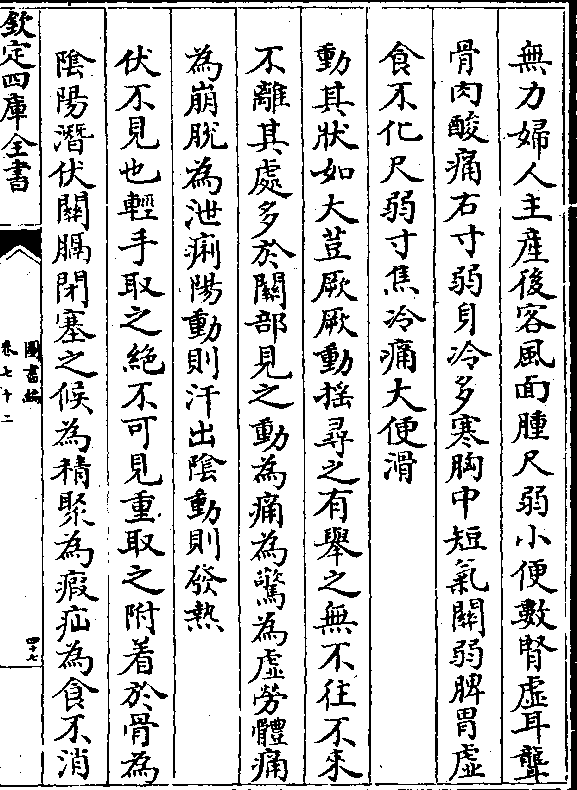 無力婦人主産後客風面腫尺弱小便數腎虛耳聾
骨肉酸痛右寸弱身冷多寒胸中短氣關弱脾胃虛
食不化尺弱寸焦冷痛大便滑
動其狀如大荳厥厥動揺尋之有舉之無不往不來
不離其處多於關部見之動為痛為驚為虛勞體痛
為崩脫為泄痢陽動則汗出陰動則發熱
伏不見也輕手取之絶不可見重取之附着於骨為
陰陽潛伏關膈閉塞之候為積聚為瘕疝為食不消
欽定四庫全書
圖書編
卷七十二
四十七